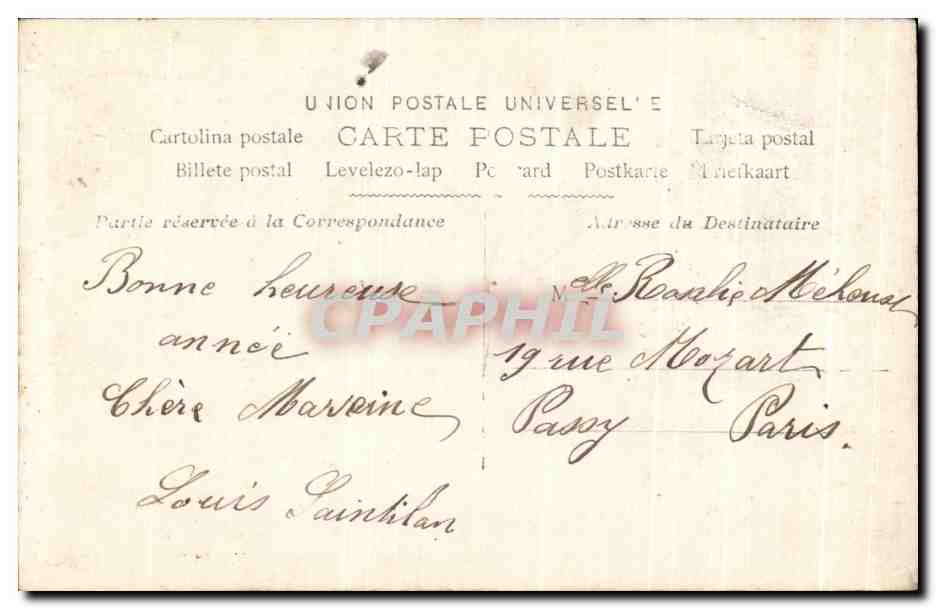 UNION POSTALE UNIVERSELLE
Cartolina postale CARTE POSTALE Tarjeta postal
Billete postal Levelezo-lap Postcard Postkarte Briefkaart
Partie réservée à la Correspondance
Adresse du Destinataire
Bonne heureuse
année
Chère Marraine
Louis Saintilan
Melle Rosalie
19 rue Mozart
Passy Paris.
CPAPHIL